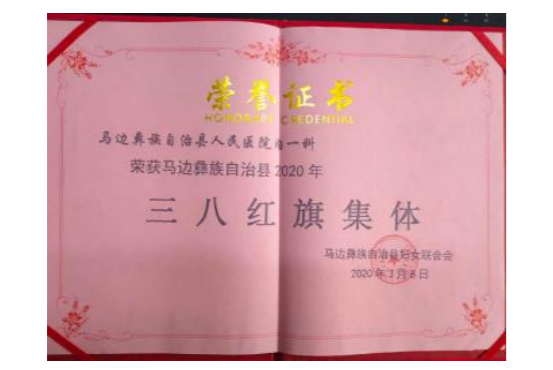 荣誉证书
HONORARY CREDENTIAL
马边彝族自治县人民医院内一科
荣获马边彝族自治县2020年
三八红旗集体
马边彝族自治县妇女联合会
2020年3月8日